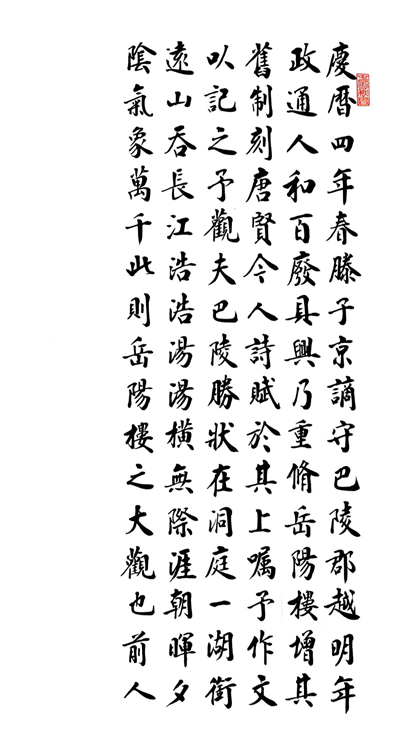 慶曆四年春滕子京謫守巴陵郡越明年
政通人和百廢具興乃重脩岳陽樓增其
舊制刻唐賢今人詩賦於其上囑予作文
以記之予觀夫巴陵勝狀在洞庭一湖銜
遠山吞長江浩浩湯湯橫無際涯朝暉夕
陰氣象萬千此則岳陽樓之大觀也前人